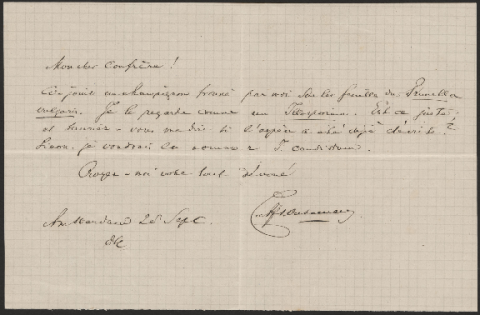 Mon cher Confrère!
Ci-joint un champignon trouvé par moi sur les feuilles du Prunella
vulgaris. Je le regarde comme un Est ce juste,
et sauriez-vous me dire si l'espèce a été déjà décrite?
Sinon, je voudrais la nommer T. candidum.
Croyez-moi votre tout dévoué
Amsterdam 20 Sept.